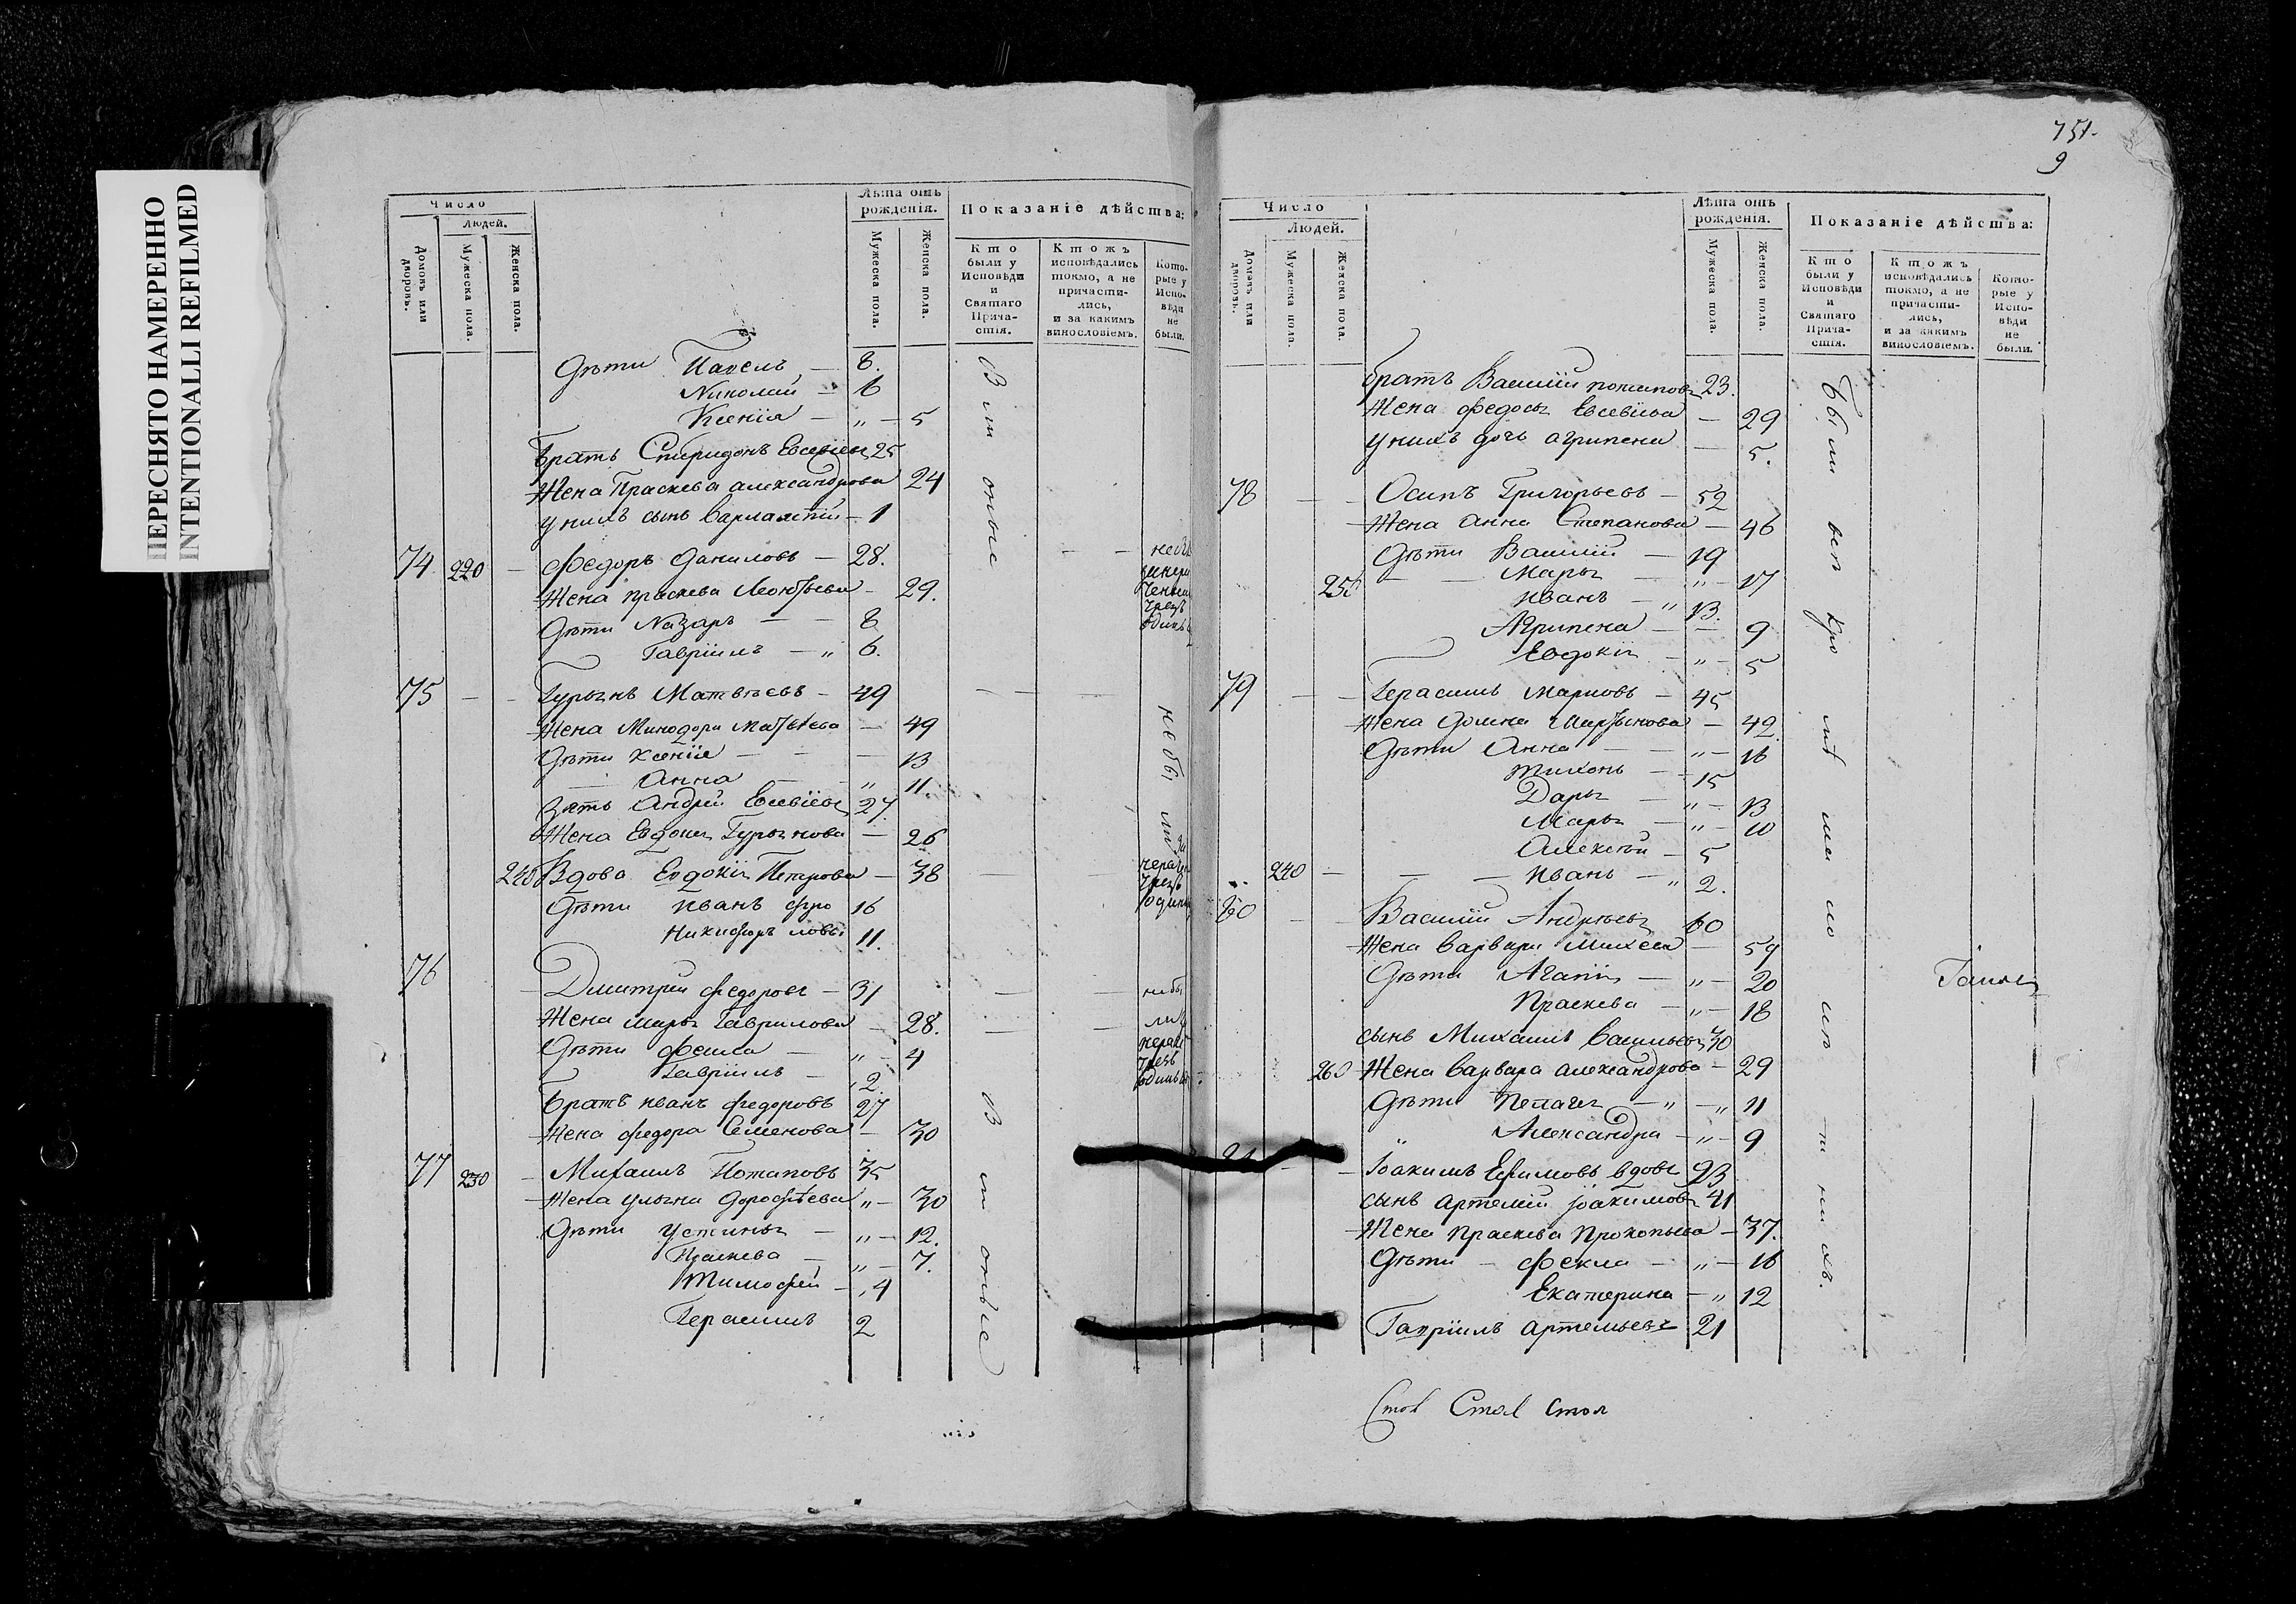 ПЕРЕСНЯТО НАМЕРЕННО
INTENTIONALLI REFILMED
Число
Людей.
Домовъ или дворовъ.
Мужеска пола.
Женска пола.
Лѣта отъ рожденія.
Мужеска пола.
Женска пола.
Показаніе дѣйства:
Кто были у Исповѣди и Святаго Причастія.
Ктожъ исповѣдались токмо, а не причастились, и за какимъ винословіемъ.
Которые у Исповѣди не были.
Дѣти Павелъ — 8.
Николай — 6
Ксенія — „ — 5
Братъ Спиридонъ Евсевіевъ 25
Жена Праскева александрова 24
у нихъ сынъ Варлампій — 1
74 220 — Федоръ Даниловъ — 28.
Жена праскева Леонтьева — 29.
Дѣти Назаръ — — 8
Гавріилъ — „ 6.
75 — — Гурьянъ Матвѣевъ — 49
Жена Минодора Матвѣева — 49
Дѣти Ксенія — — — 13
Анна — — „ 11.
Зять Андрей Евсевіевъ 27.
Жена Евдокия Гурьянова — 26
240 Вдова Евдокія Петрова — 38
Дѣти иванъ фро 16
Никифоръ ловы 11.
76 — Дмитрій федоровъ — 31
Жена марья Гаврилова — 28.
Дѣти фекла — „ — 4
Гавріилъ — 2.
Братъ иванъ федоровъ 27
Жена федора Семенова — 30
77 230 — Михаилъ Потаповъ 35
Жена ульяна Дорофѣева „ — 30
Дѣти Устинья — „ — 12.
Праскева — „ — 7.
Тимофей — „ 4
Герасимъ 2
Были оные
Были оные
не были
751.
9
Число
Людей.
Домовъ или дворовъ.
Мужеска пола.
Женска пола.
Лѣта отъ рожденія.
Мужеска пола.
Женска пола.
Показаніе дѣйства:
Кто были у Исповѣди и Святаго Причастія.
Ктожъ исповѣдались токмо, а не причастились, и за какимъ винословіемъ.
Которые у Исповѣди не были.
братъ Василій потаповъ 23.
Жена федосья Евсевіева — 29
у нихъ дочь агрипена — 5.
78 — — Осипъ Григорьевъ — 52
Жена анна Степанова — 46
Дѣти Василій — 19
250 — — Марья — „ — 17
иванъ — „ 13.
Агрипена — — 9
Евдокія — „ — 5
79 — — Герасимъ Марковъ — 45
Жена Домна Мартынова — 42.
Дѣти Анна — — „ — 16
тихонъ — 15
Дарья — „ — 13
Марья — „ — 10
Алексѣй — 5
240 — — — иванъ — „ 2.
80 — — Василій Андрѣевъ 60
Жена варвара — 59
Дѣти Агапія — „ — 20
Праскева — „ — 18
сынъ Михаилъ Васильевъ 30
260 Жена варвара александрова — 29
Дѣти Пелагея — „ — „ 11
„ Александра — „ — 9
81 — — Іоакимъ Ефимовъ вдовъ 93
сынъ артемій іоакимовъ 41
Жена праскева Прокопьева — 37.
Дѣти — фекла — „ — 16
Екатерина — „ 12
Гавріилъ артемьевъ 21
Стол Стол Стол